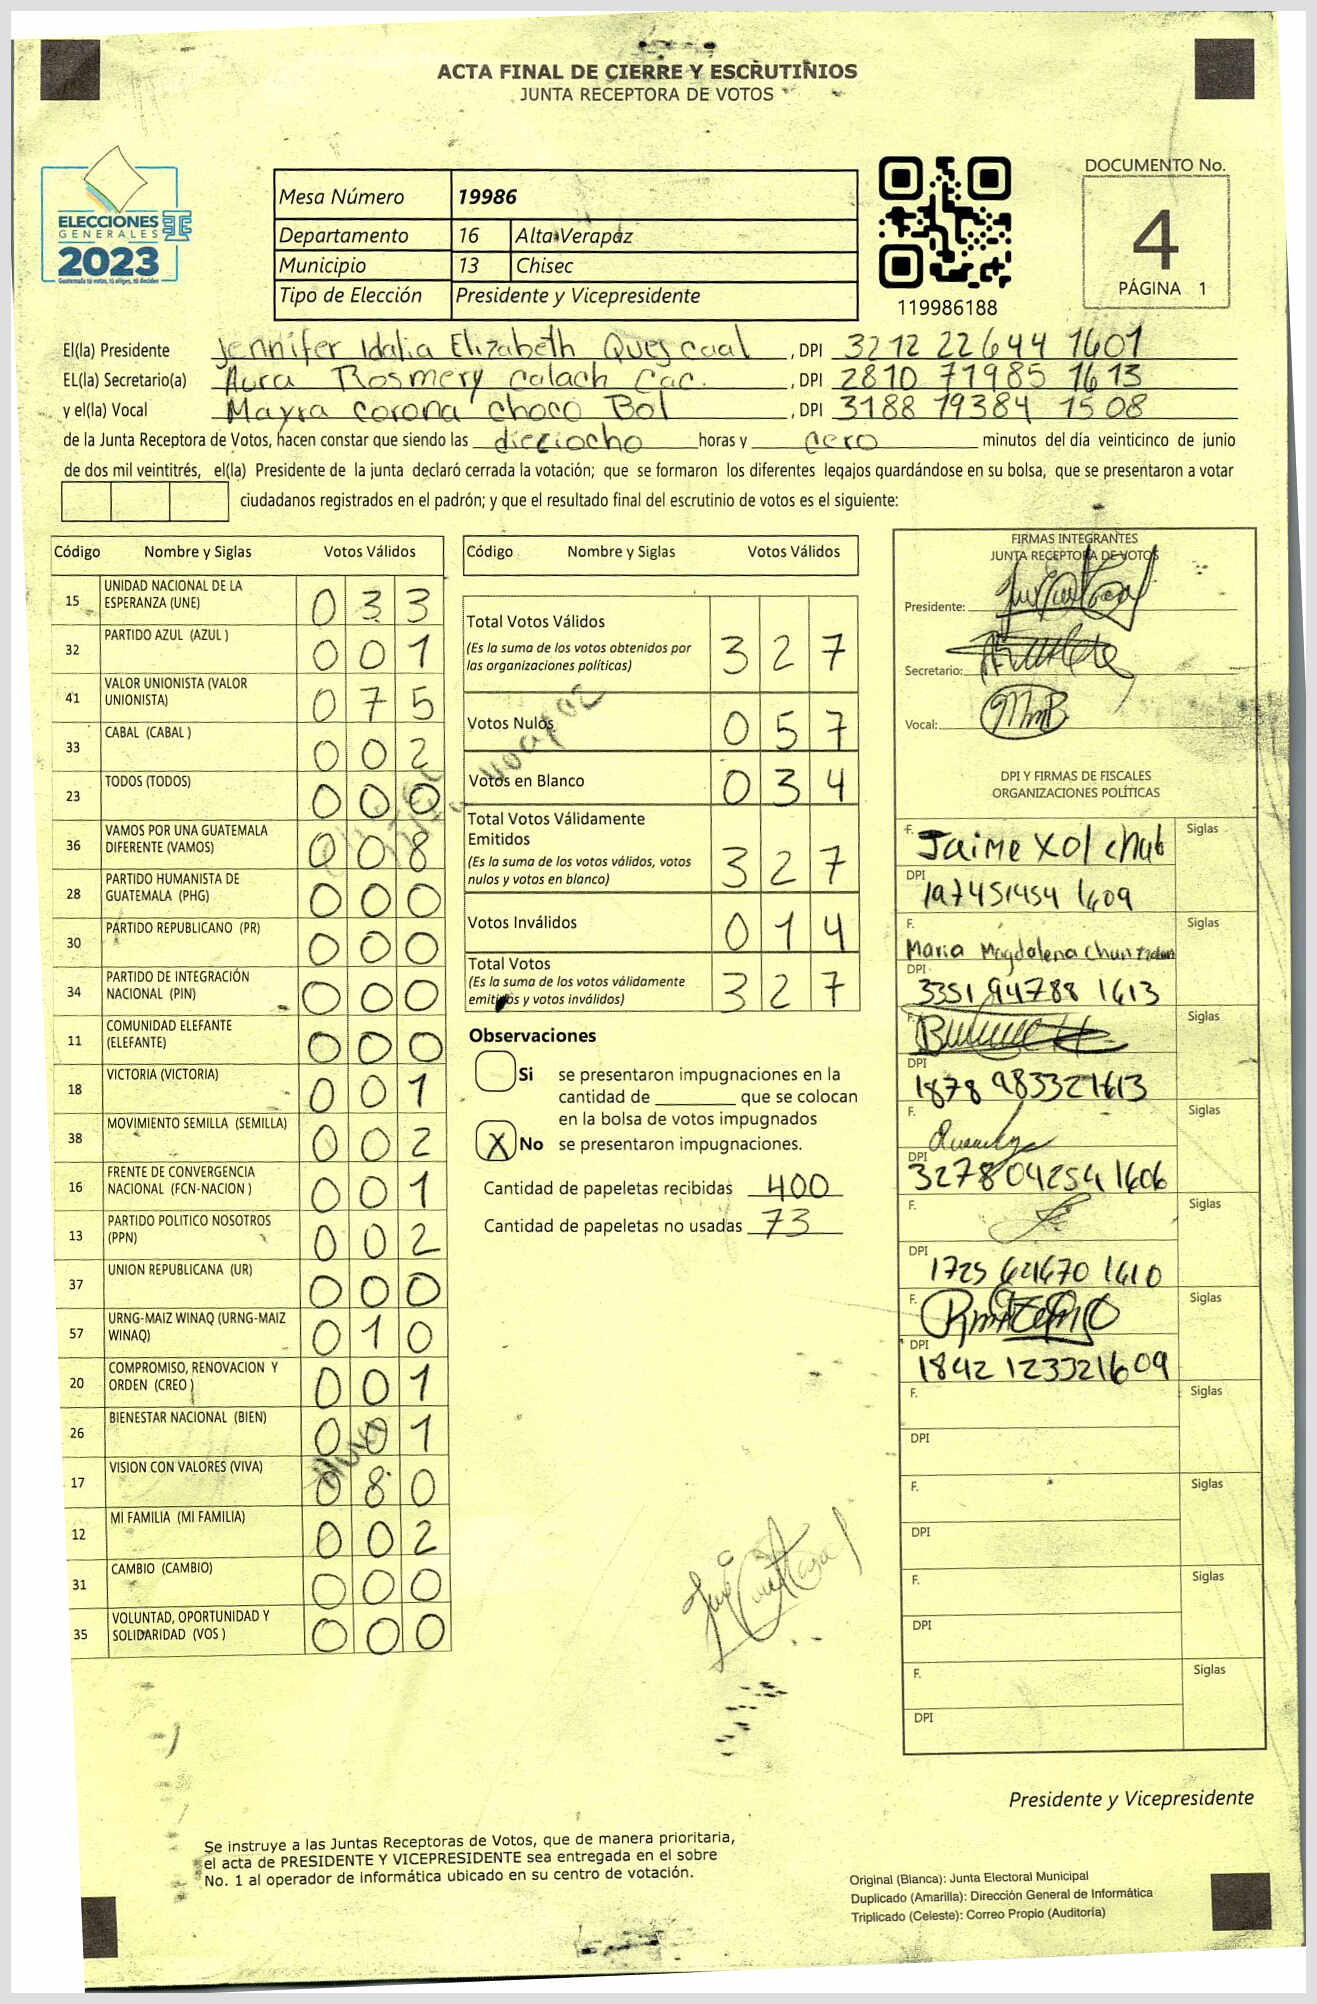 ACTA FINAL DE CIERRE Y ESCRUTINIOS
JUNTA RECEPTORA DE VOTOS
ELECCIONES
GENERALES
2023
Guatemala tú votas, tú eliges, tú decides
Mesa Número 19986
Departamento 16 Alta Verapaz
Municipio 13 Chisec
Tipo de Elección Presidente y Vicepresidente
119986188
DOCUMENTO No.
4
PÁGINA 1
El(la) Presidente Jennifer Idalia Elizabeth Quej caal , DPI 3212 22644 1601
EL(la) Secretario(a) Aura Rosmery Calach Cac. , DPI 2810 71985 1613
y el(la) Vocal Mayra corona choco Bol , DPI 3188 19384 1508
de la Junta Receptora de Votos, hacen constar que siendo las dieciocho horas y cero minutos del día veinticinco de junio
de dos mil veintitrés, el(la) Presidente de la junta declaró cerrada la votación; que se formaron los diferentes legajos guardándose en su bolsa, que se presentaron a votar
ciudadanos registrados en el padrón; y que el resultado final del escrutinio de votos es el siguiente:
Código Nombre y Siglas Votos Válidos
15 UNIDAD NACIONAL DE LA ESPERANZA (UNE) 033
32 PARTIDO AZUL (AZUL ) 001
41 VALOR UNIONISTA (VALOR UNIONISTA) 075
33 CABAL (CABAL ) 002
23 TODOS (TODOS) 000
36 VAMOS POR UNA GUATEMALA DIFERENTE (VAMOS) 008
28 PARTIDO HUMANISTA DE GUATEMALA (PHG) 000
30 PARTIDO REPUBLICANO (PR) 000
34 PARTIDO DE INTEGRACIÓN NACIONAL (PIN) 000
11 COMUNIDAD ELEFANTE (ELEFANTE) 000
18 VICTORIA (VICTORIA) 001
38 MOVIMIENTO SEMILLA (SEMILLA) 002
16 FRENTE DE CONVERGENCIA NACIONAL (FCN-NACION ) 001
13 PARTIDO POLITICO NOSOTROS (PPN) 002
37 UNION REPUBLICANA (UR) 000
57 URNG-MAIZ WINAQ (URNG-MAIZ WINAQ) 010
20 COMPROMISO, RENOVACION Y ORDEN (CREO ) 001
26 BIENESTAR NACIONAL (BIEN) 001
17 VISION CON VALORES (VIVA) 080
12 MI FAMILIA (MI FAMILIA) 002
31 CAMBIO (CAMBIO) 000
35 VOLUNTAD, OPORTUNIDAD Y SOLIDARIDAD (VOS ) 000
Código Nombre y Siglas Votos Válidos
Total Votos Válidos 327
(Es la suma de los votos obtenidos por
las organizaciones políticas)
Votos Nulos 057
Votos en Blanco 034
Total Votos Válidamente
Emitidos 327
(Es la suma de los votos válidos, votos
nulos y votos en blanco)
Votos Inválidos 014
Total Votos 327
(Es la suma de los votos válidamente
emitidos y votos inválidos)
Observaciones
Si se presentaron impugnaciones en la
cantidad de ________ que se colocan
en la bolsa de votos impugnados
X No se presentaron impugnaciones.
Cantidad de papeletas recibidas 400
Cantidad de papeletas no usadas 73
FIRMAS INTEGRANTES
JUNTA RECEPTORA DE VOTOS
Presidente:
Secretario:
Vocal:
DPI Y FIRMAS DE FISCALES
ORGANIZACIONES POLÍTICAS
F. Jaime Xol chub Siglas
DPI 197451454 1609
F. Maria Magdalena Chun Siglas
DPI 3351 94788 1613
F. Siglas
DPI 1878 983321613
F. Siglas
DPI 3278 04254 1606
F. Siglas
DPI 1725 621670 1610
F. Siglas
DPI 1842 123321609
F. Siglas
DPI
F. Siglas
DPI
F. Siglas
DPI
F. Siglas
DPI
Presidente y Vicepresidente
Se instruye a las Juntas Receptoras de Votos, que de manera prioritaria,
el acta de PRESIDENTE Y VICEPRESIDENTE sea entregada en el sobre
No. 1 al operador de informática ubicado en su centro de votación.
Original (Blanca): Junta Electoral Municipal
Duplicado (Amarilla): Dirección General de Informática
Triplicado (Celeste): Correo Propio (Auditoría)